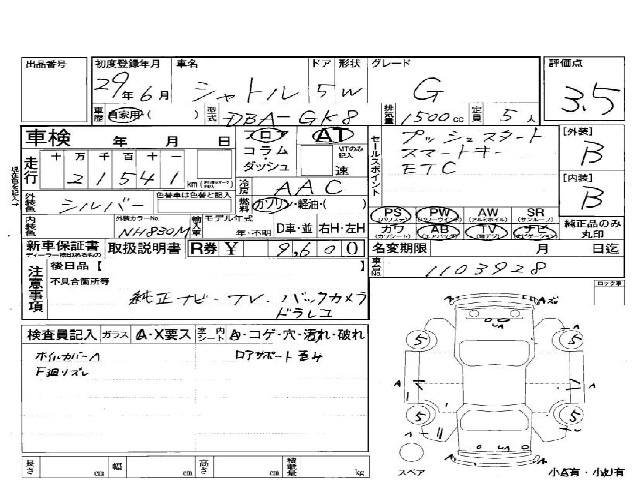 出品番号 初度登録年月 車名 ドア 形状 グレード 評価点
29年6月 シャトル 5 W G 3.5
車歴 自家用・( ) 型式 DBA-GK8 排気量 1500cc 定員 5人
車検 年 月 日 フロア AT
コラム・ダッシュ MTのみ記入 速
セールスポイント プッシュスタート
スマートキー
ETC
[外装] B
[内装] B
走行 十 万 千 百 十 一
21541 km
冷房 AAC
外装色 シルバー 色替車は色替と記入 燃料 ガソリン・軽油・( )
内装色 外装カラーNo. NH830M 輸入車 モデル年式 年・不明 D車・並 右H・左H
PS PW AW SR
カワ AB TV ナビ
純正品のみ丸印
新車保証書 取扱説明書 R券 ¥ 9,600 名変期限 月 日迄
注意事項 後日品【 】 車台No. 1103928
不具合箇所等
純正ナビ・TV・バックカメラ
ドラレコ
ロック車
検査員記入 ガラス A・X要ス 室内シート A・コゲ・穴・汚れ・破れ
ホイルカバーA
F廻りズレ
5 5
A A
5 5
長さ cm 幅 cm 高さ cm 積載量 kg
スペア